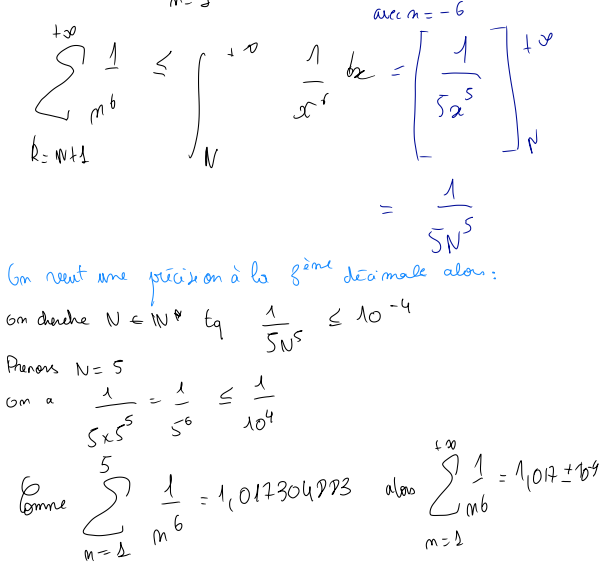 n=1
avec n = -6
+∞ ∑ k=N+1 1/n^6 ≤ ∫_N^{+∞} 1/x^6 dx = [1/5x^5]_N^{+∞}
= 1/5N^5
On veut une précision à la 3ème décimale alors :
on cherche N ∈ ℕ* tq 1/5N^5 ≤ 10^-4
Prenons N = 5
on a 1/5×5^5 = 1/5^6 ≤ 1/10^4
Comme 5 ∑ n=1 1/n^6 = 1,017304 alors +∞ ∑ n=1 1/n^6 = 1,017 ± 10^-4